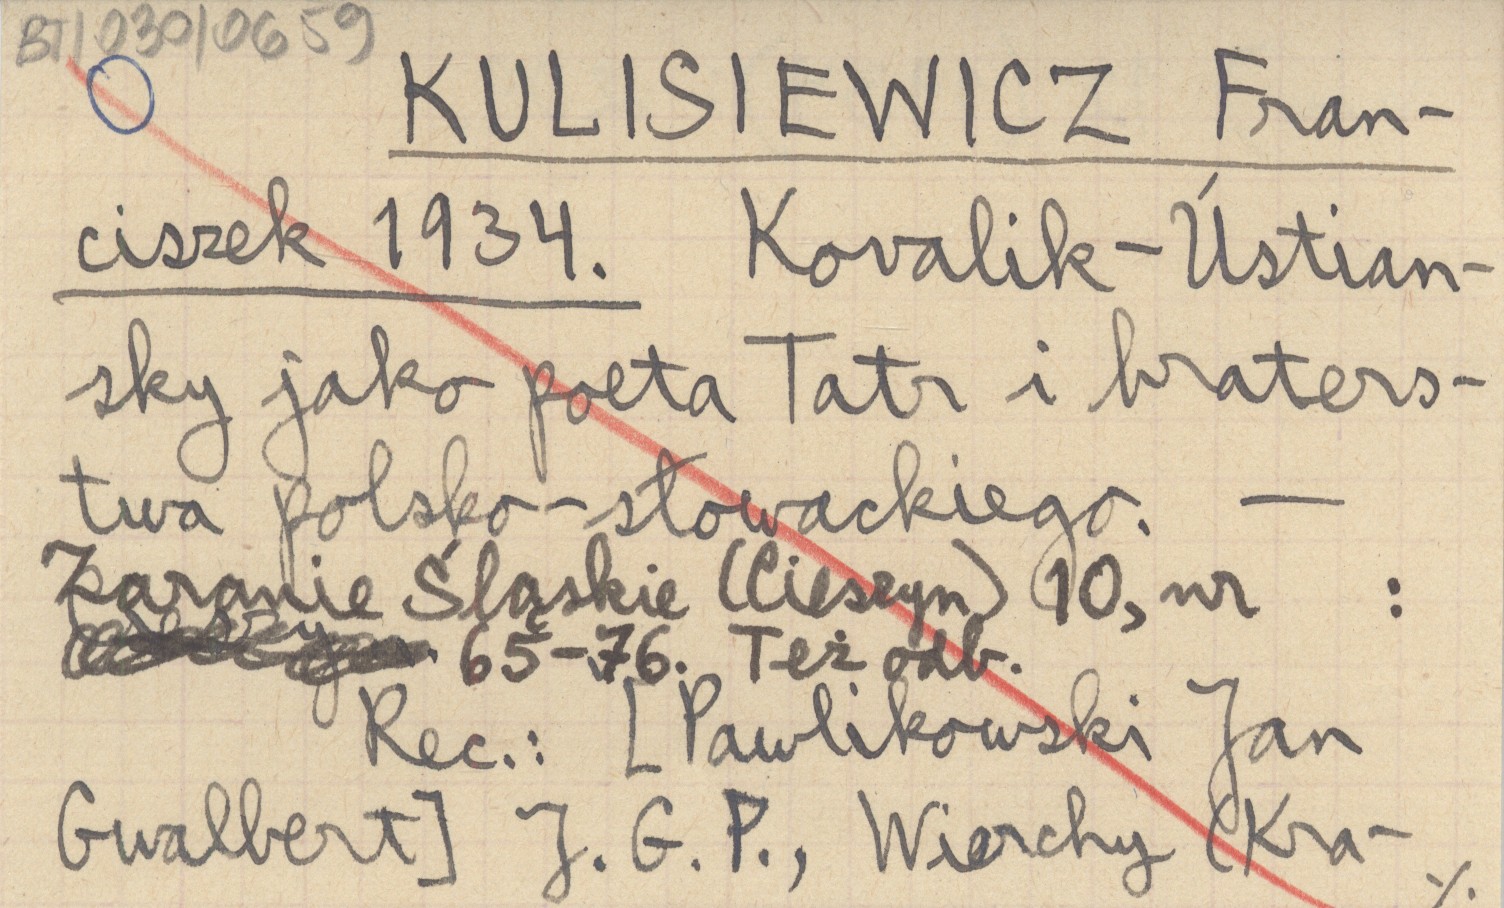 BT/030/0659
KULISIEWICZ Fran-
ciszek 1934. Kovalik-Ústian-
sky jako poeta Tatr i braters-
twa polsko-słowackiego. —
Zaranie Śląskie (Cieszyn) 10, nr :
65-76. Też odb.
Rec.: [Pawlikowski Jan
Gwalbert] J. G. P., Wierchy (Kra-
./.